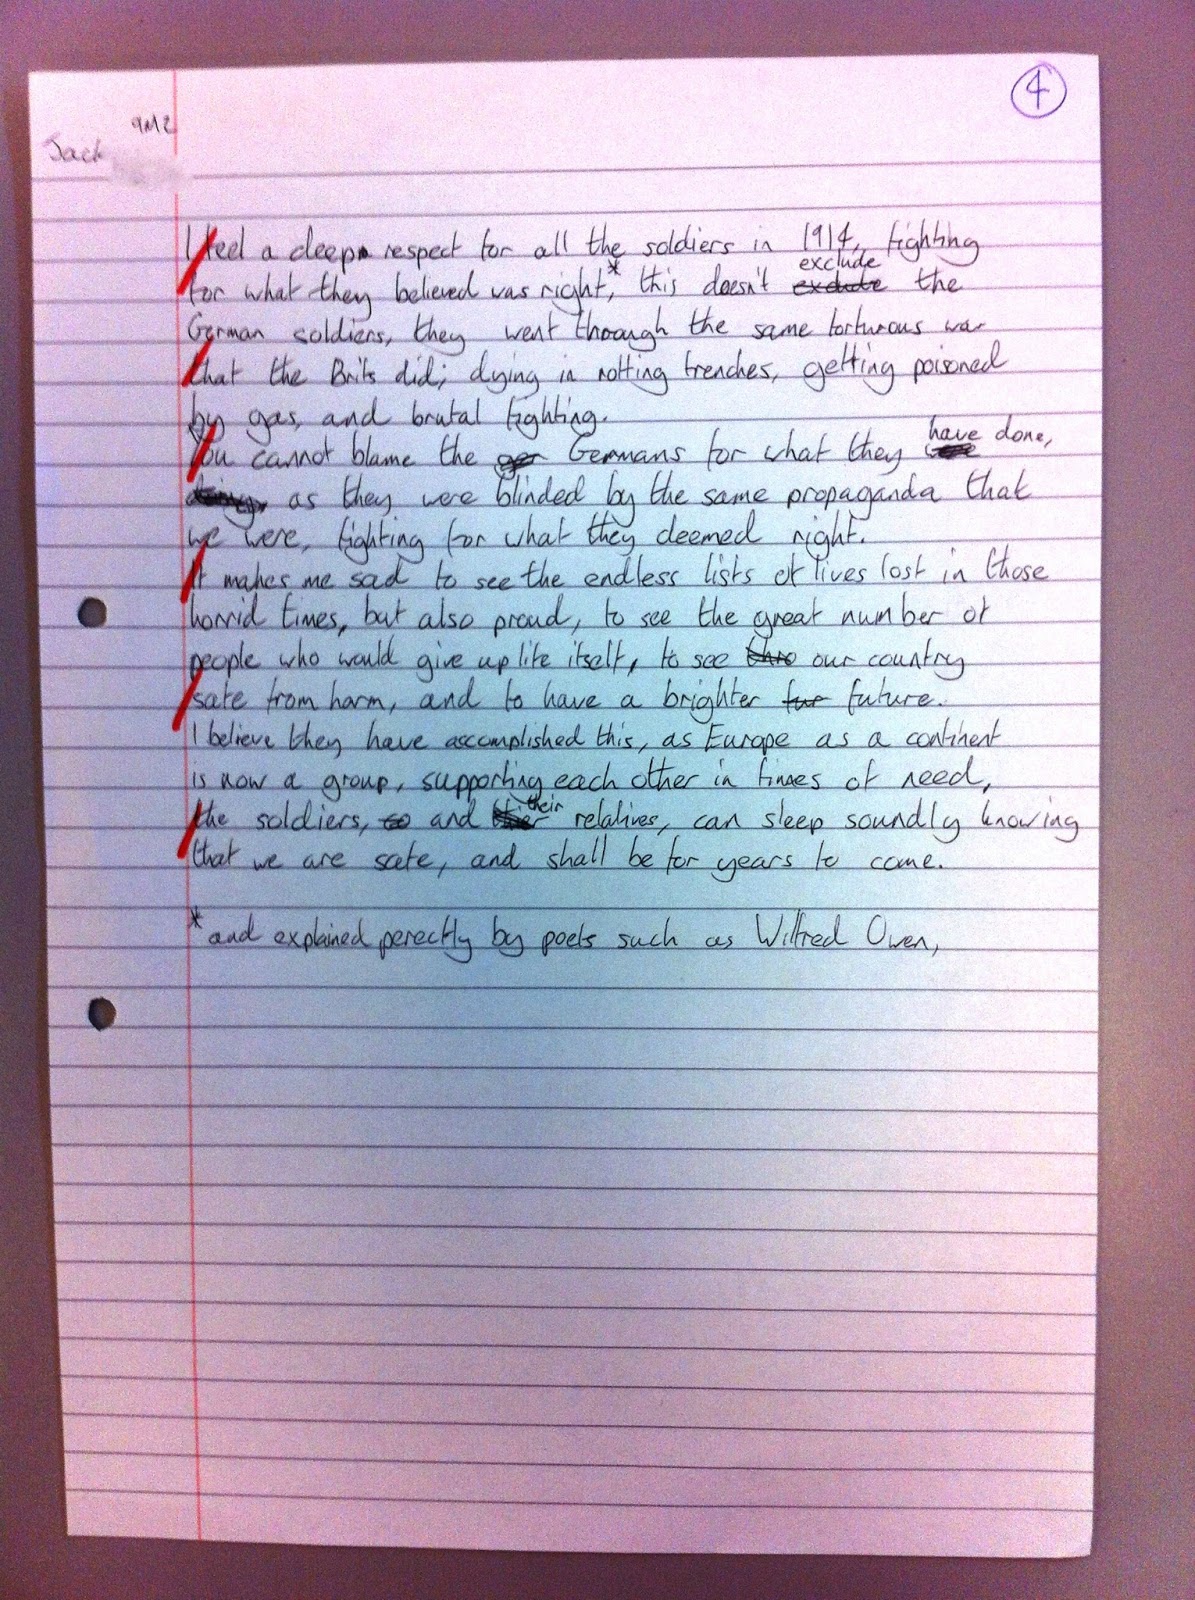 4
9M2
Jack
I feel a deep respect for all the soldiers in 1914, fighting
exclude
for what they believed was right,* this doesn't exclude the
German soldiers, they went through the same torturous war
that the Brits did; dying in rotting trenches, getting poisoned
by gas, and brutal fighting.
have done,
You cannot blame the ger Germans for what they
as they were blinded by the same propaganda that
we were, fighting for what they deemed right.
It makes me sad to see the endless lists of lives lost in those
horrid times, but also proud, to see the great number of
people who would give up life itself, to see our country
safe from harm, and to have a brighter fur future.
I believe they have accomplished this, as Europe as a continent
is now a group, supporting each other in times of need,
their
the soldiers, to and relatives, can sleep soundly knowing
that we are safe, and shall be for years to come.
*and explained perectly by poets such as Wilfred Owen,